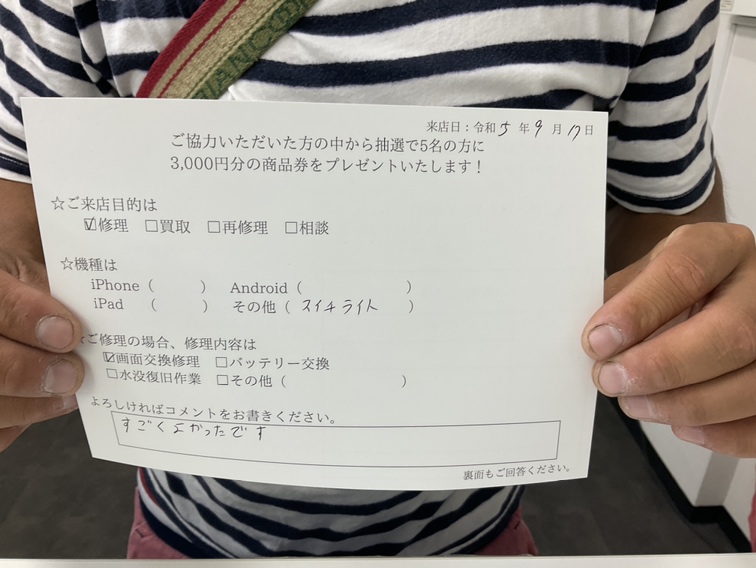 来店日：令和 5 年 9 月 17日
ご協力いただいた方の中から抽選で5名の方に
3,000円分の商品券をプレゼントいたします！
☆ご来店目的は
☑修理 □買取 □再修理 □相談
☆機種は
iPhone（ ） Android（ ）
iPad （ ） その他（ スイチライト ）
☆ご修理の場合、修理内容は
☑画面交換修理 □バッテリー交換
□水没復旧作業 □その他（ ）
よろしければコメントをお書きください。
すごくよかったです
裏面もご回答ください。